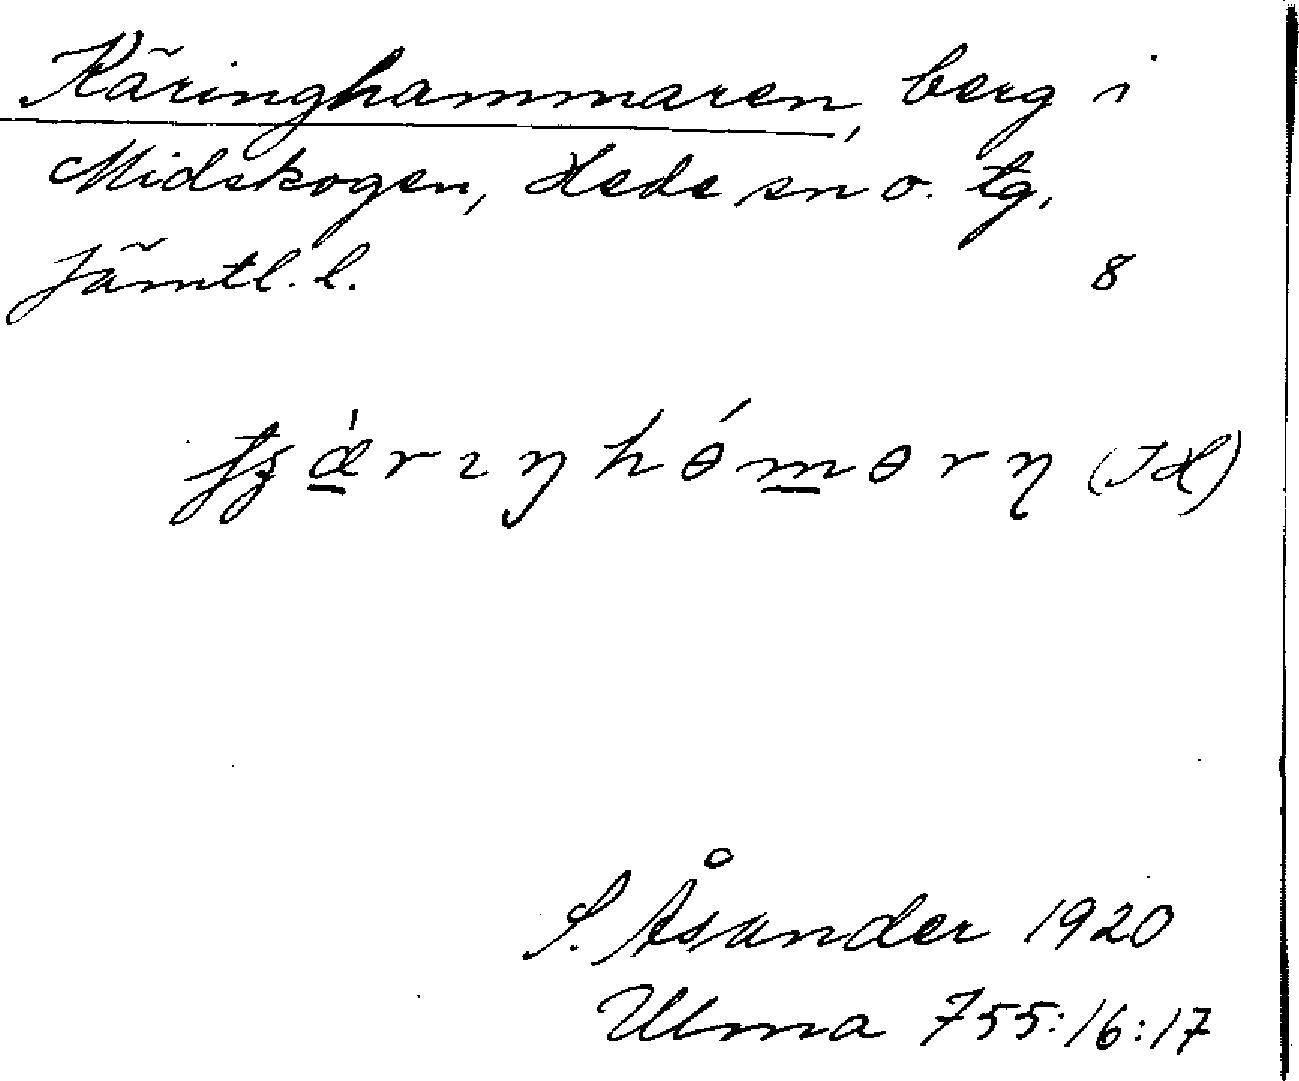 Käringhammaren, berg i
Midskogen, Hede sn o. tg,
Jämtl. l. 8
(JH)
S. Åsander 1920
Ulma 755:16:17